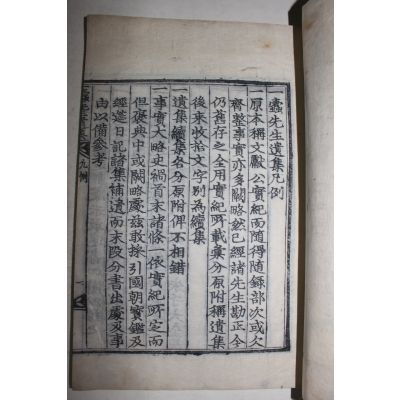 一蠹先生遺集凡例
一原本稱文獻公實紀而隨得隨錄部次或欠
齊整事實亦多闕略然已經諸先生勘正今
仍舊存之全用實紀所載彙分原附稱遺集
後來收拾文字別為續集
一遺集續集各分原附俾不相錯
一事實大略史禍首末諸條一依實紀所定而
但褒典中或闕略處玆敢採引國朝寶鑑及
經筵日記諸集補遺而末段分書出處及事
由以備參考
凡例